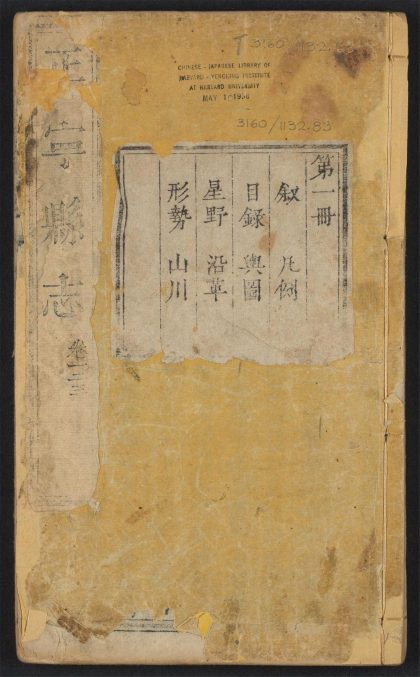 T 3160 1132.83
CHINESE - JAPANESE LIBRARY OF
HARVARD - YENCHING INSTITUTE
AT HARVARD UNIVERSITY
MAY
3160/1132.83
第一冊
敘 凡例
目錄 輿圖
星野 沿革
形勢 山川
縣志 卷一二三